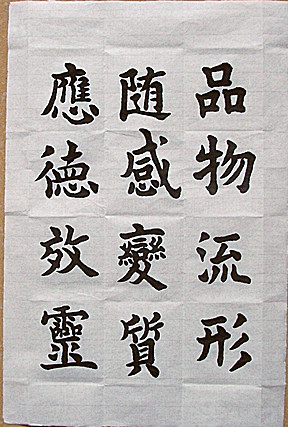 品物流形
随感變質
應徳效靈